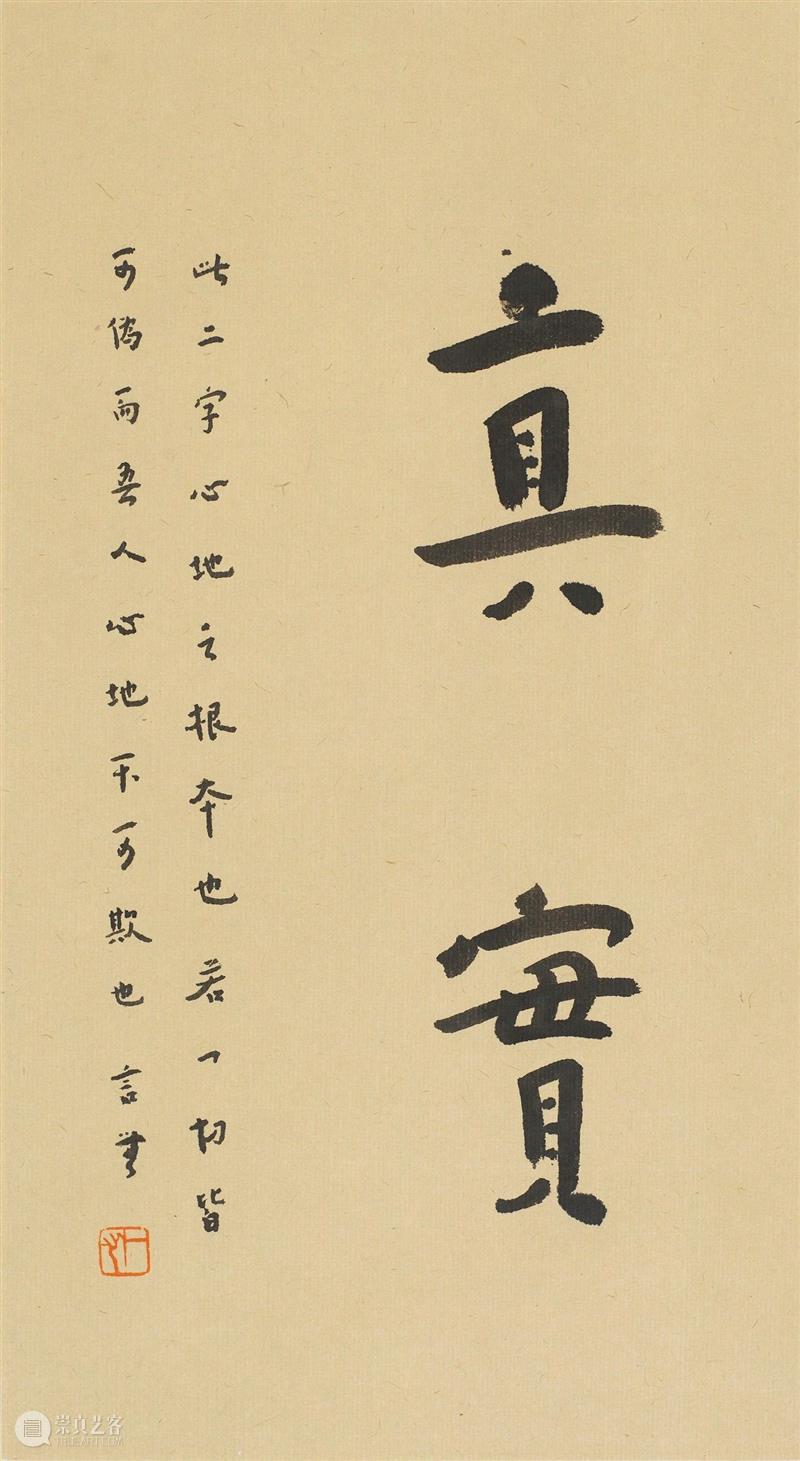 真實
此二字心地之根本也若一切皆
可偽而吾人心地不可欺也 言無
崇真艺客
TRUEART.COM